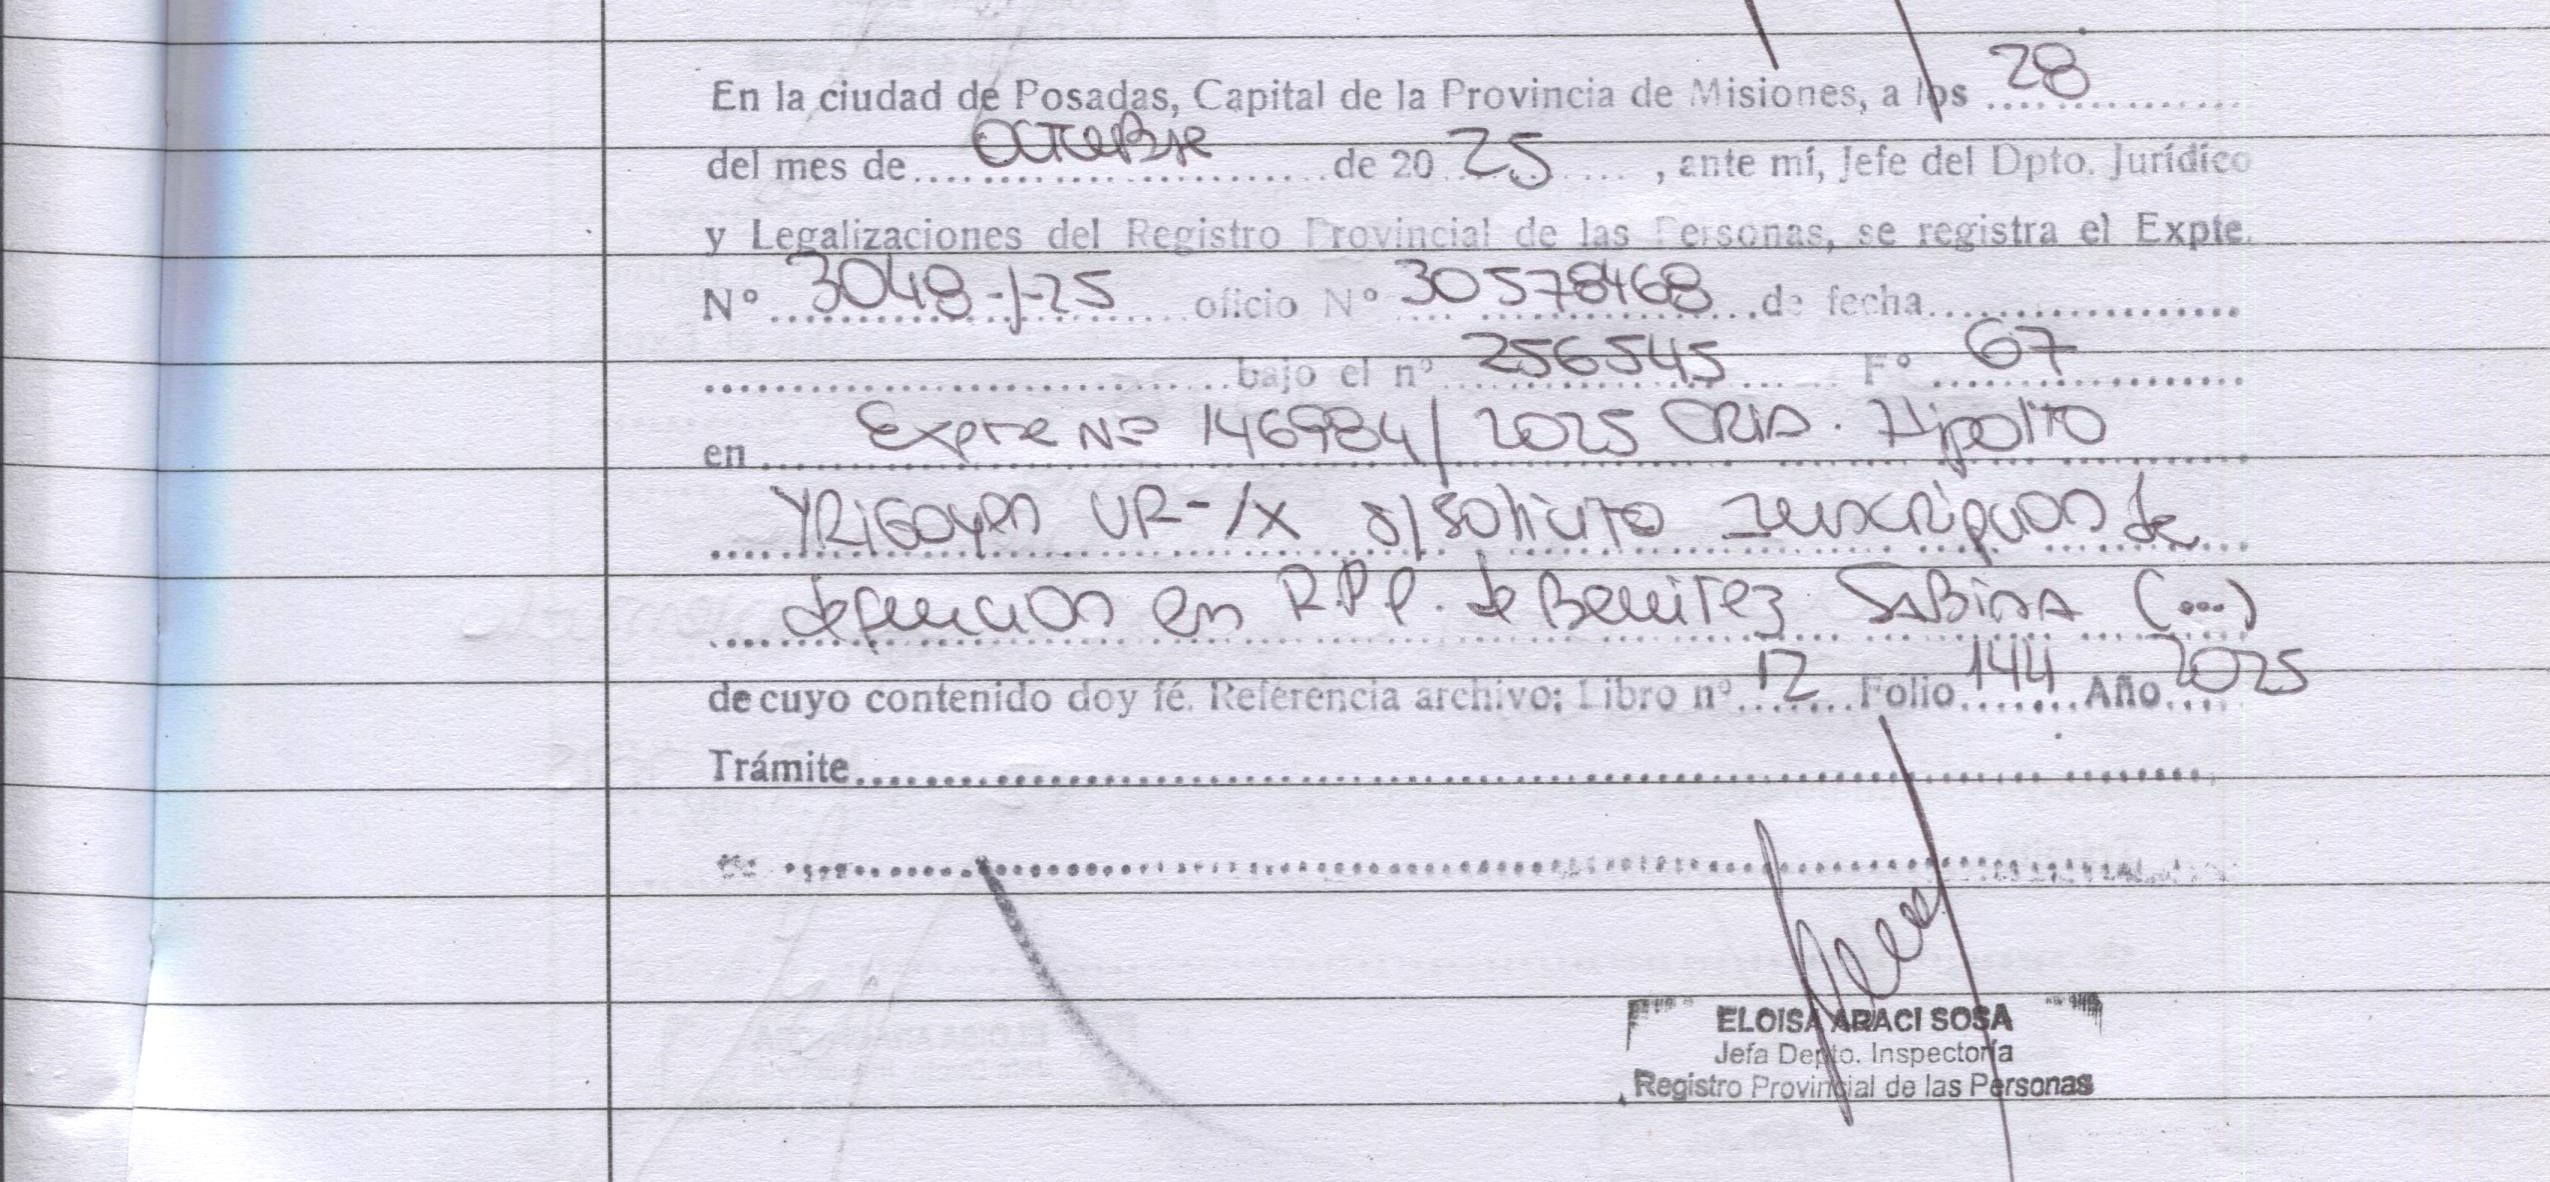 En la ciudad de Posadas, Capital de la Provincia de Misiones, a los 28
del mes de octubre de 2025, ante mí, Jefe del Dpto. Jurídico
y Legalizaciones del Registro Provincial de las Personas, se registra el Expte.
Nº 3048-J-25 oficio Nº 30578468 de fecha
bajo el nº 256545 Fº 67
en Expte Nº 146984/2025 CRIA. Hipolito
YRIGOYEN UR-IX s/ solicito inscripcion de
defuncion en R.P.P. de Benitez Sabina (...)
de cuyo contenido doy fé. Referencia archivo: Libro nº 12 Folio 144 Año 2025
Trámite
ELOISA ARACI SOSA
Jefa Depto. Inspectoría
Registro Provincial de las Personas